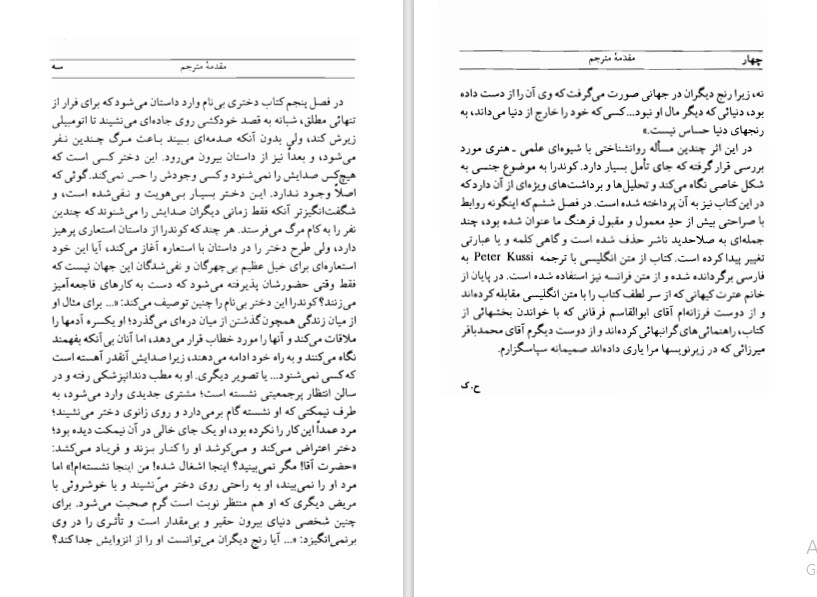 مقدمهٔ مترجم سه
در فصل پنجم کتاب دختری بی‌نام وارد داستان می‌شود که برای فرار از
تنهائی مطلق، شبانه به قصد خودکشی روی جاده‌ای می‌نشیند تا اتومبیلی
زیرش کند، ولی بدون آنکه صدمه‌ای ببیند باعث مرگ چندین نفر
می‌شود، و بعداً نیز از داستان بیرون می‌رود. این دختر کسی است که
هیچ‌کس صدایش را نمی‌شنود و کسی وجودش را حس نمی‌کند. گوئی که
اصلاً وجود ندارد. این دختر بسیار بی‌هویت و نفی‌شده است، و
شگفت‌انگیزتر آنکه فقط زمانی دیگران صدایش را می‌شنوند که چندین
نفر را به کام مرگ می‌فرستد. هر چند که کوندرا از داستان استعاری پرهیز
دارد، ولی طرح دختر را در داستان با استعاره آغاز می‌کند، آیا این خود
استعاره‌ای برای خیل عظیم بی‌چهرگان و نفی‌شدگان این جهان نیست که
فقط وقتی حضورشان پذیرفته می‌شود که دست به کارهای فاجعه‌آمیز
می‌زنند؟ کوندرا این دختر بی‌نام را چنین توصیف می‌کند: «... برای مثال او
از میان زندگی همچون گذشتن از میان دره‌ای می‌گذرد؛ او یکسره آدمها را
ملاقات می‌کند و آنها را مورد خطاب قرار می‌دهد، اما آنان بی‌آنکه بفهمند
نگاه می‌کنند و به راه خود ادامه می‌دهند، زیرا صدایش آنقدر آهسته است
که کسی نمی‌شنود... یا تصویر دیگری. او به مطب دندانپزشکی رفته و در
سالن انتظار پرجمعیتی نشسته است؛ مشتری جدیدی وارد می‌شود، به
طرف نیمکتی که او نشسته گام برمی‌دارد و روی زانوی دختر می‌نشیند؛
مرد عمداً این کار را نکرده بود، او یک جای خالی در آن نیمکت دیده بود؛
دختر اعتراض می‌کند و می‌کوشد او را کنار بزند و فریاد می‌کشد:
«حضرت آقا! مگر نمی‌بینید؟ اینجا اشغال شده! من اینجا نشسته‌ام!» اما
مرد او را نمی‌بیند، او به راحتی روی دختر می‌نشیند و با خوشروئی با
مریض دیگری که او هم منتظر نوبت است گرم صحبت می‌شود. برای
چنین شخصی دنیای بیرون حقیر و بی‌مقدار است و تأثری را در وی
برنمی‌انگیزد: «... آیا رنج دیگران می‌توانست او را از انزوایش جدا کند؟
چهار مقدمهٔ مترجم
نه، زیرا رنج دیگران در جهانی صورت می‌گرفت که وی آن را از دست داده
بود، دنیائی که دیگر مال او نبود... کسی که خود را خارج از دنیا می‌داند، به
رنجهای دنیا حساس نیست.»
در این اثر چندین مسأله روانشناختی با شیوه‌ای علمی ـ هنری مورد
بررسی قرار گرفته که جای تأمل بسیار دارد. کوندرا به موضوع جنسی به
شکل خاصی نگاه می‌کند و تحلیل‌ها و برداشت‌های ویژه‌ای از آن دارد که
در این کتاب نیز به آن پرداخته شده است. در فصل ششم که اینگونه روابط
با صراحتی بیش از حدِ معمول و مقبول فرهنگ ما عنوان شده بود، چند
جمله‌ای به صلاحدید ناشر حذف شده است و گاهی کلمه و یا عبارتی
تغییر پیدا کرده است. کتاب از متن انگلیسی با ترجمه Peter Kussi به
فارسی برگردانده شده و از متن فرانسه نیز استفاده شده است. در پایان از
خانم عترت کیهانی که از سر لطف کتاب را با متن انگلیسی مقابله کرده‌اند
و از دوست فرزانه‌ام آقای ابوالقاسم فرقانی که با خواندن بخشهائی از
کتاب، راهنمائی‌های گرانبهائی کرده‌اند و از دوست دیگرم آقای محمدباقر
میرزائی که در زیرنویسها مرا یاری داده‌اند صمیمانه سپاسگزارم.
ح. ک
A
G